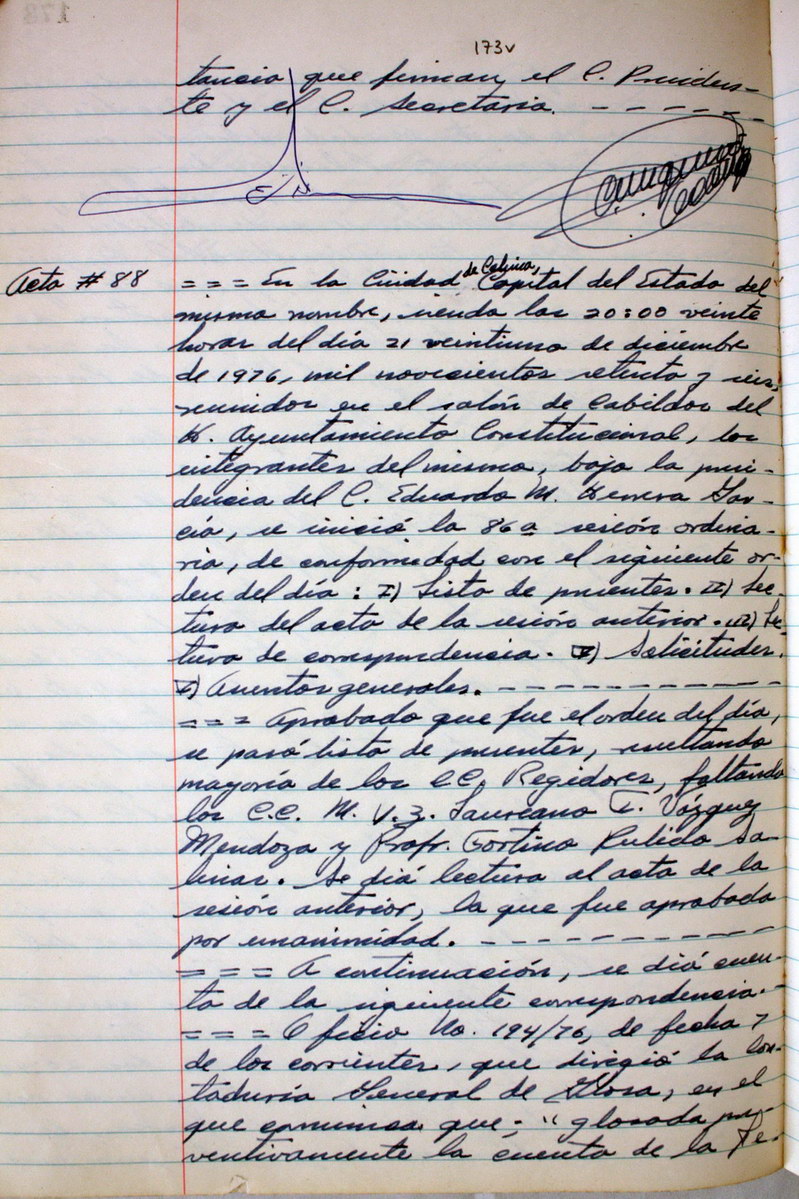 173v
tancia que firman el C. Presiden-
te y el C. Secretario. - - - - - -
Acta # 88
= = = En la Ciudad de Colima, Capital del Estado del
mismo nombre, siendo las 20:00 veinte
horas del día 21 veintiuno de diciembre
de 1976, mil novecientos setenta y seis,
reunidos en el salón de Cabildos del
H. Ayuntamiento Constitucional, los
integrantes del mismo, bajo la presi-
dencia del C. Eduardo M. Herrera Gar-
cía, se inició la 86a sesión ordina-
ria, de conformidad con el siguiente or-
den del día: I) Lista de presentes. II) Lec-
tura del acta de la sesión anterior. III) Lec-
tura de correspondencia. IV) Solicitudes.
V) Asuntos generales. - - - - - - - - - - -
= = = Aprobado que fue el orden del día,
se pasó lista de presentes, resultando
mayoría de los CC. Regidores, faltando
los C.C. M. V. Z. Laureano T. Vázquez
Mendoza y Profr. Gortino Pulido Sa-
linas. Se dió lectura al acta de la
sesión anterior, la que fue aprobada
por unanimidad. - - - - - - - - - - -
= = = A continuación, se dió cuen-
ta de la siguiente correspondencia. -
= = = Oficio No. 194/76, de fecha 7
de los corrientes, que dirigió la Con-
taduría General de Glosa, en el
que comunica que; "glosada pre-
ventivamente la cuenta de la Te-